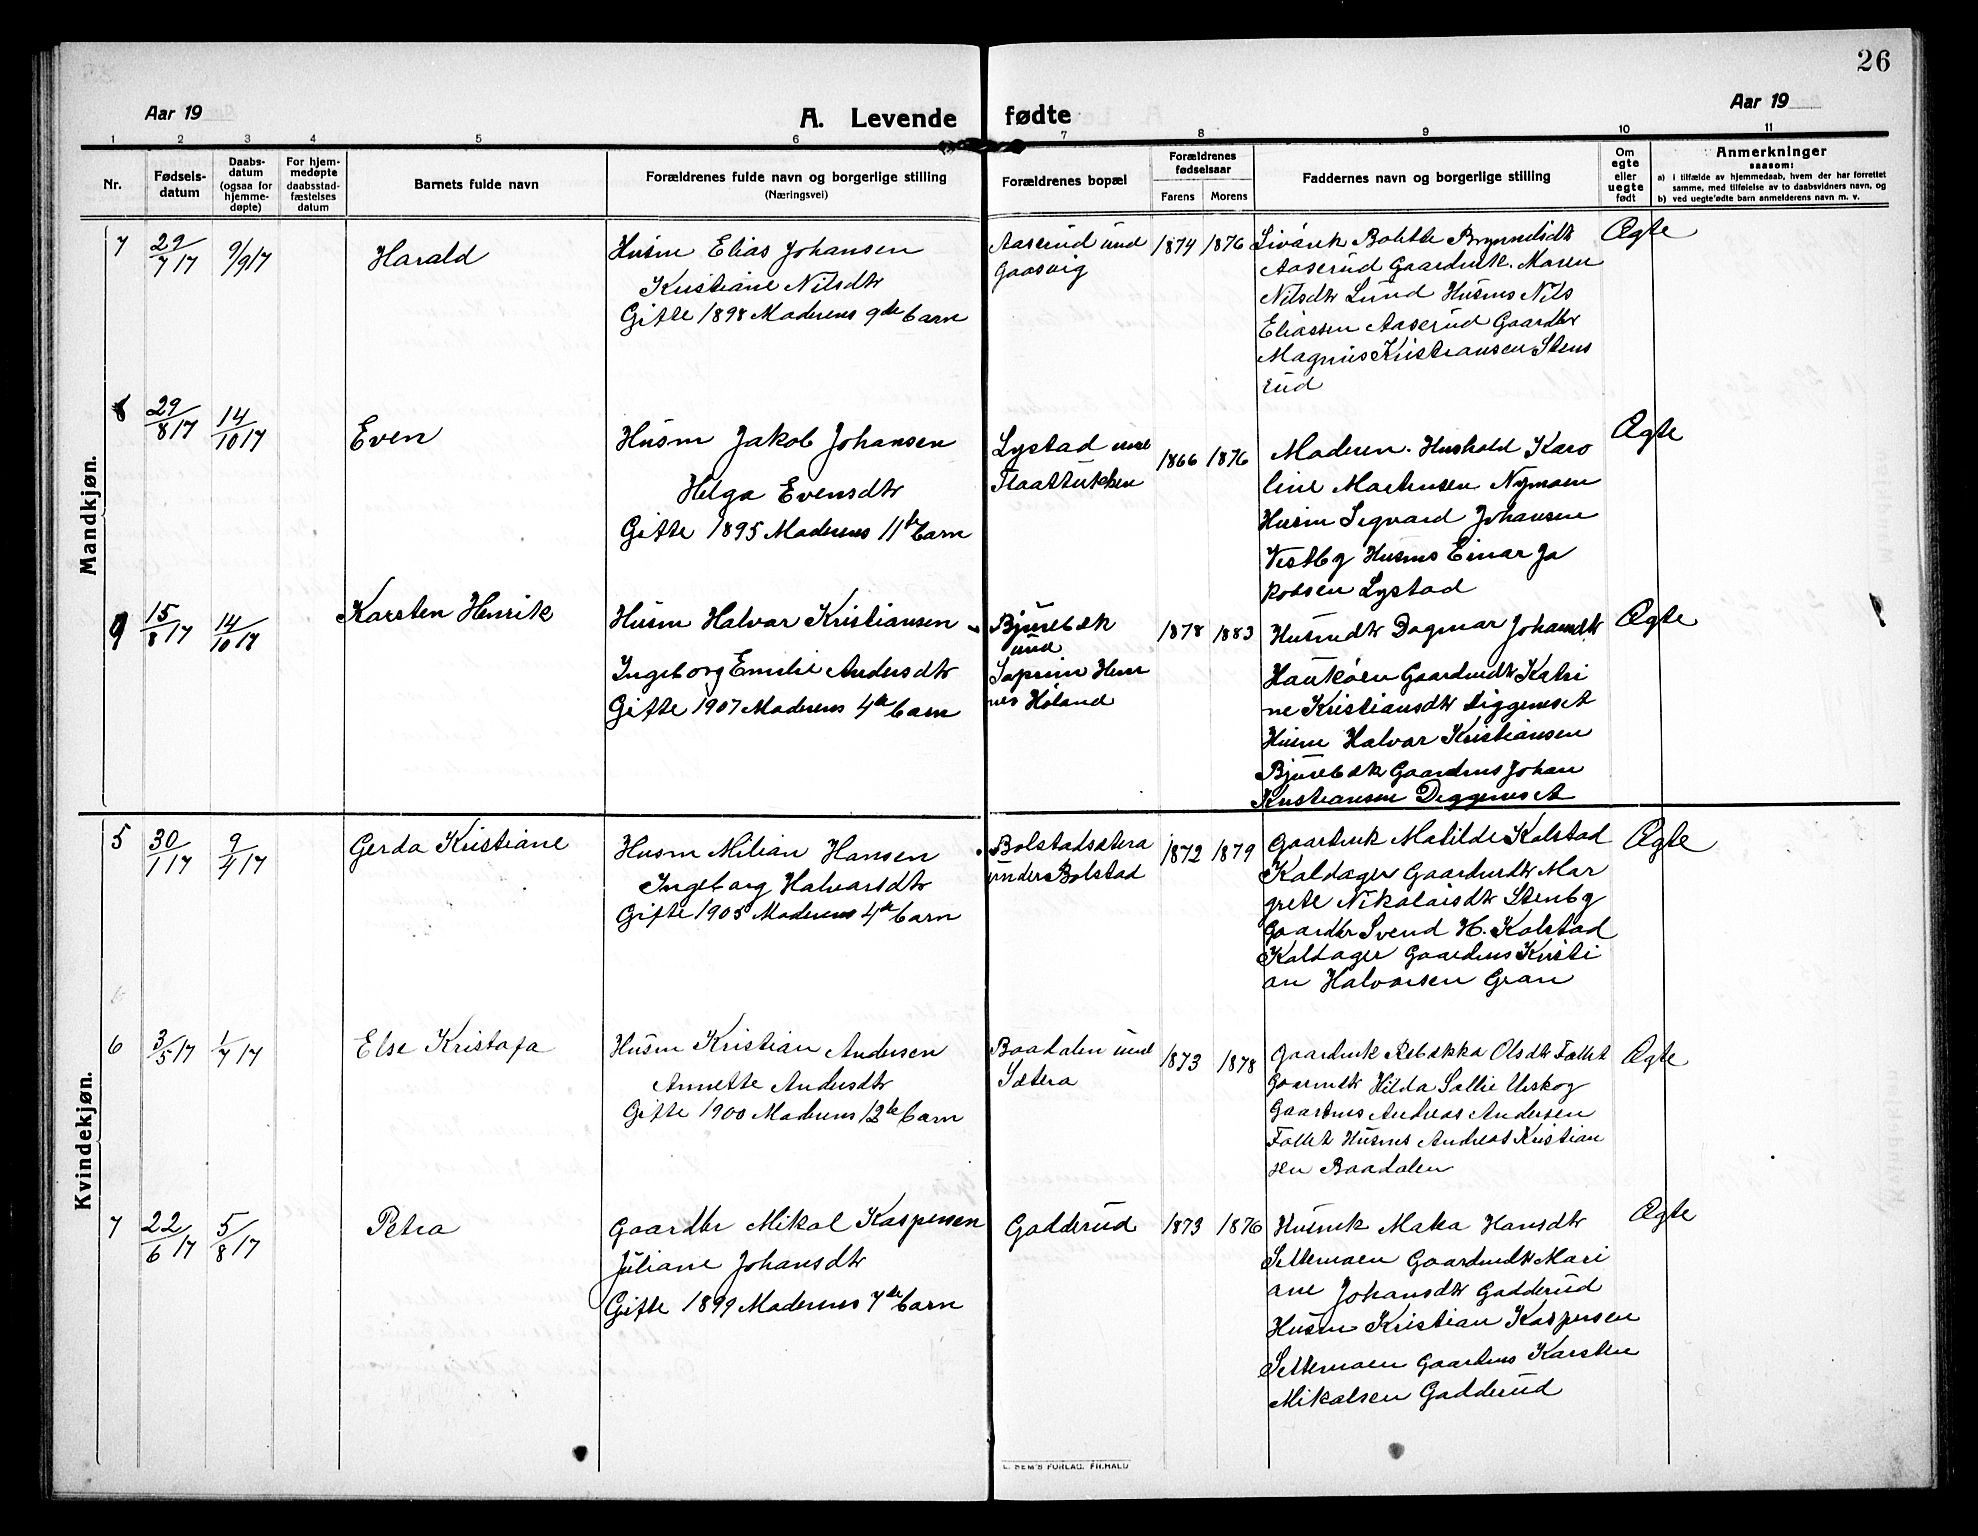 26
Aar 19
A. Levende fødte
Aar 19
1 2 3 4 5 6 7 8 9 10 11
Nr.
Fødsels-
datum
Daabs-
datum
(ogsaa for
hjemme-
døpte)
For hjem-
medøpte
daabsstad-
fæstelses
datum
Barnets fulde navn
Forældrenes fulde navn og borgerlige stilling
(Næringsvei)
Forældrenes bopæl
Forældrenes
fødselsaar
Farens Morens
Faddernes navn og borgerlige stilling
Om
egte
eller
uegte
født
Anmerkninger
saasom:
a) i tilfælde av hjemmedaab, hvem der har forrettet
samme, med tilføielse av to daabsvidners navn, og
b) ved uegte fødte barn anmelderens navn m. v.
Mandkjøn.
7 29/7 17 9/9 17 Harald
Husm Elias Johansen
Kristiane Nilsdtr
Gifte 1898 Moderens 9de barn
Aaserud und
Gaasvig
1874 1876
Bolette Brynnildsdtr
Aaserud Gaardmk. Maren
Nilsdtr Lund Husms Nils
Eliassen Aaserud Gaardbr
Magnus Kristiansen Stens
rud
Ægte
8 29/8 17 14/10 17 Even
Husm Jakob Johansen
Helga Evensdtr
Gifte 1895 Moderens 11te barn
Lystad und
1866 1876
Moderen. Hushold Karo
line Martinsen Nymoen
Husm Sigvard Johansen
Vestby Husms Einar Ja
kobsen Lystad
Ægte
9 15/8 17 14/10 17 Karsten Henrik
Husm Halvor Kristiansen
Ingeborg Emilie Andersdtr
Gifte 1907 Moderens 4de barn
Bjurebæk
und
Hem
nes Høland
1878 1883
Husmdtr Dagmar Johansdtr
Haukøen Gaardmdtr Katri
ne Kristiansdtr Diggeruset
Husm Halvor Kristiansen
Bjurebæk Gaardms Johan
Kristiansen Diggeruset
Ægte
Kvindekjøn.
5 30/1 17 9/4 17 Gerda Kristiane
Husm Milian Hansen
Ingeborg Halvorsdtr
Gifte 1905 Moderens 4de barn
Bolstadsætera
under Bolstad
1872 1879
Gaardmk Matilde Kolstad
Kaldager Gaardmdtr Mar
grete Nikolaisdtr Stenby
Gaardbr Svend H. Kolstad
Kaldager Gaardms Kristi
an Halvorsen Gran
Ægte
6 3/5 17 1/7 17 Else Kristofa
Husm Kristian Andersen
Annette Andersdtr
Gifte 1900 Moderens 12te barn
Baadalen und
Sætera
1873 1878
Gaardmk Rebekka Olsdtr Fallet
Gaardmdtr Hilda Urskog
Gaardms Andreas Andersen
Fallet Husms Andreas Kristian
sen Baadalen
Ægte
7 22/6 17 5/8 17 Petra
Gaardbr Mikal Kaspersen
Juliane Johansdtr
Gifte 1899 Moderens 7de barn
Gadderud
1873 1876
Husmk Maka Hansdtr
Settemoen Gaardmdtr Mari
ane Johansdtr Gadderud
Husm Kristian Kaspersen
Settemoen Gaardms Karsten
Mikalsen Gadderud
Ægte
SEM'S FORLAG. FR.HALD